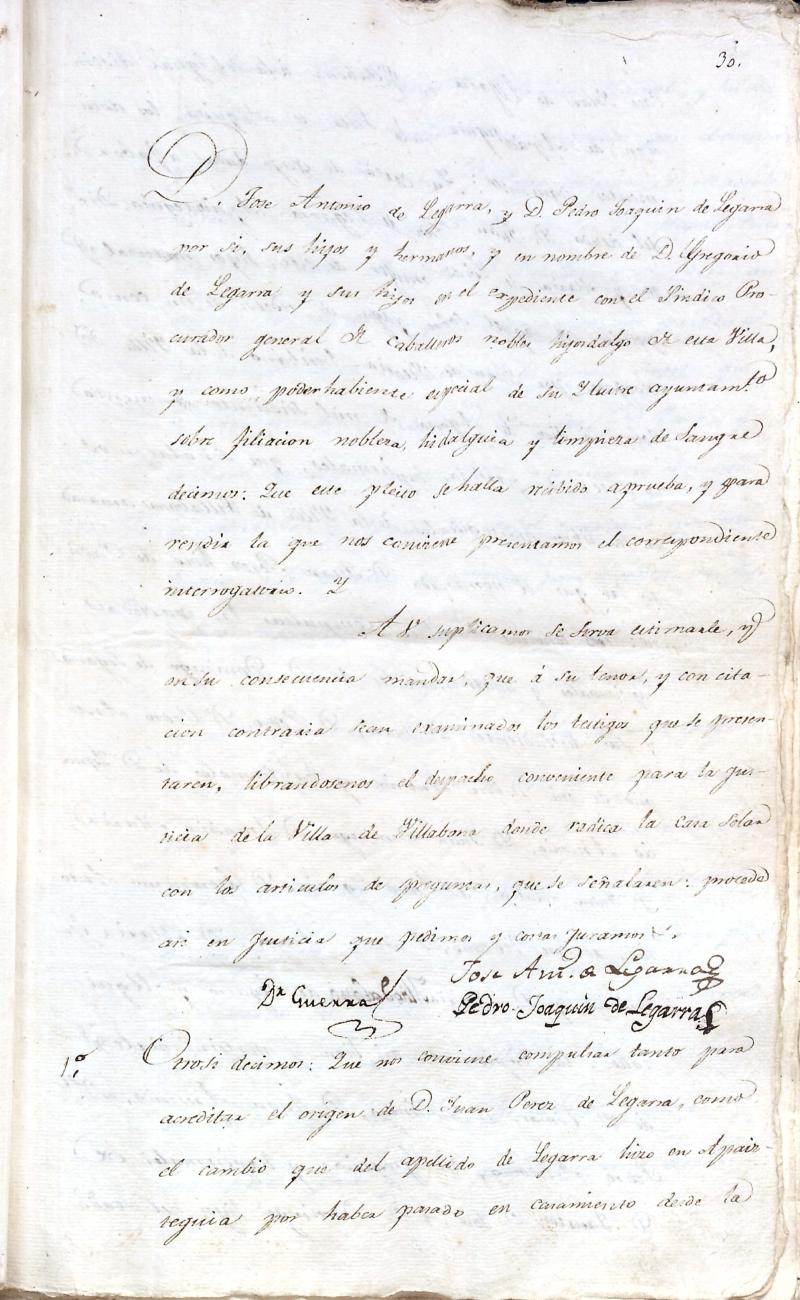 30.
D. Jose Antonio de Legarra, y D. Pedro Joaquin de Legarra
por si, sus hijos y hermanos, y en nombre de D. Gregorio
de Legarra y sus hijos en el expediente con el Sindico Pro-
curador general de Caballeros nobles hijosdalgo de esta Villa,
y como poderhabiente especial de su Ylustre ayuntam.to
sobre filiacion nobleza, hidalguia y limpieza de Sangre
decimos: Que este pleito se halla recibido aprueba, y para
rendir la que nos conviene presentamos el correspondiente
interrogatorio. Y
A V. suplicamos se sirva estimarle, y
en su consecuencia mandar, que á su tenor, y con cita-
cion contraria sean examinados los testigos que se presen-
taren, librandosenos el despacho conveniente para la jus-
ticia de la Villa de Villabona donde radica la casa solar
con los articulos de preguntas, que se señalaren: procede
asi en Justicia que pedimos y costas juramos &.
Jose Ant.o de Legarra
Dr Guerra
Pedro Joaquin de Legarra
1.o Otrosi decimos: Que nos conviene compulsar tanto para
acreditar el origen de D. Juan Perez de Legarra, como
el cambio que del apellido de Legarra hizo en Apaiz-
teguia por haber pasado en casamiento desde la